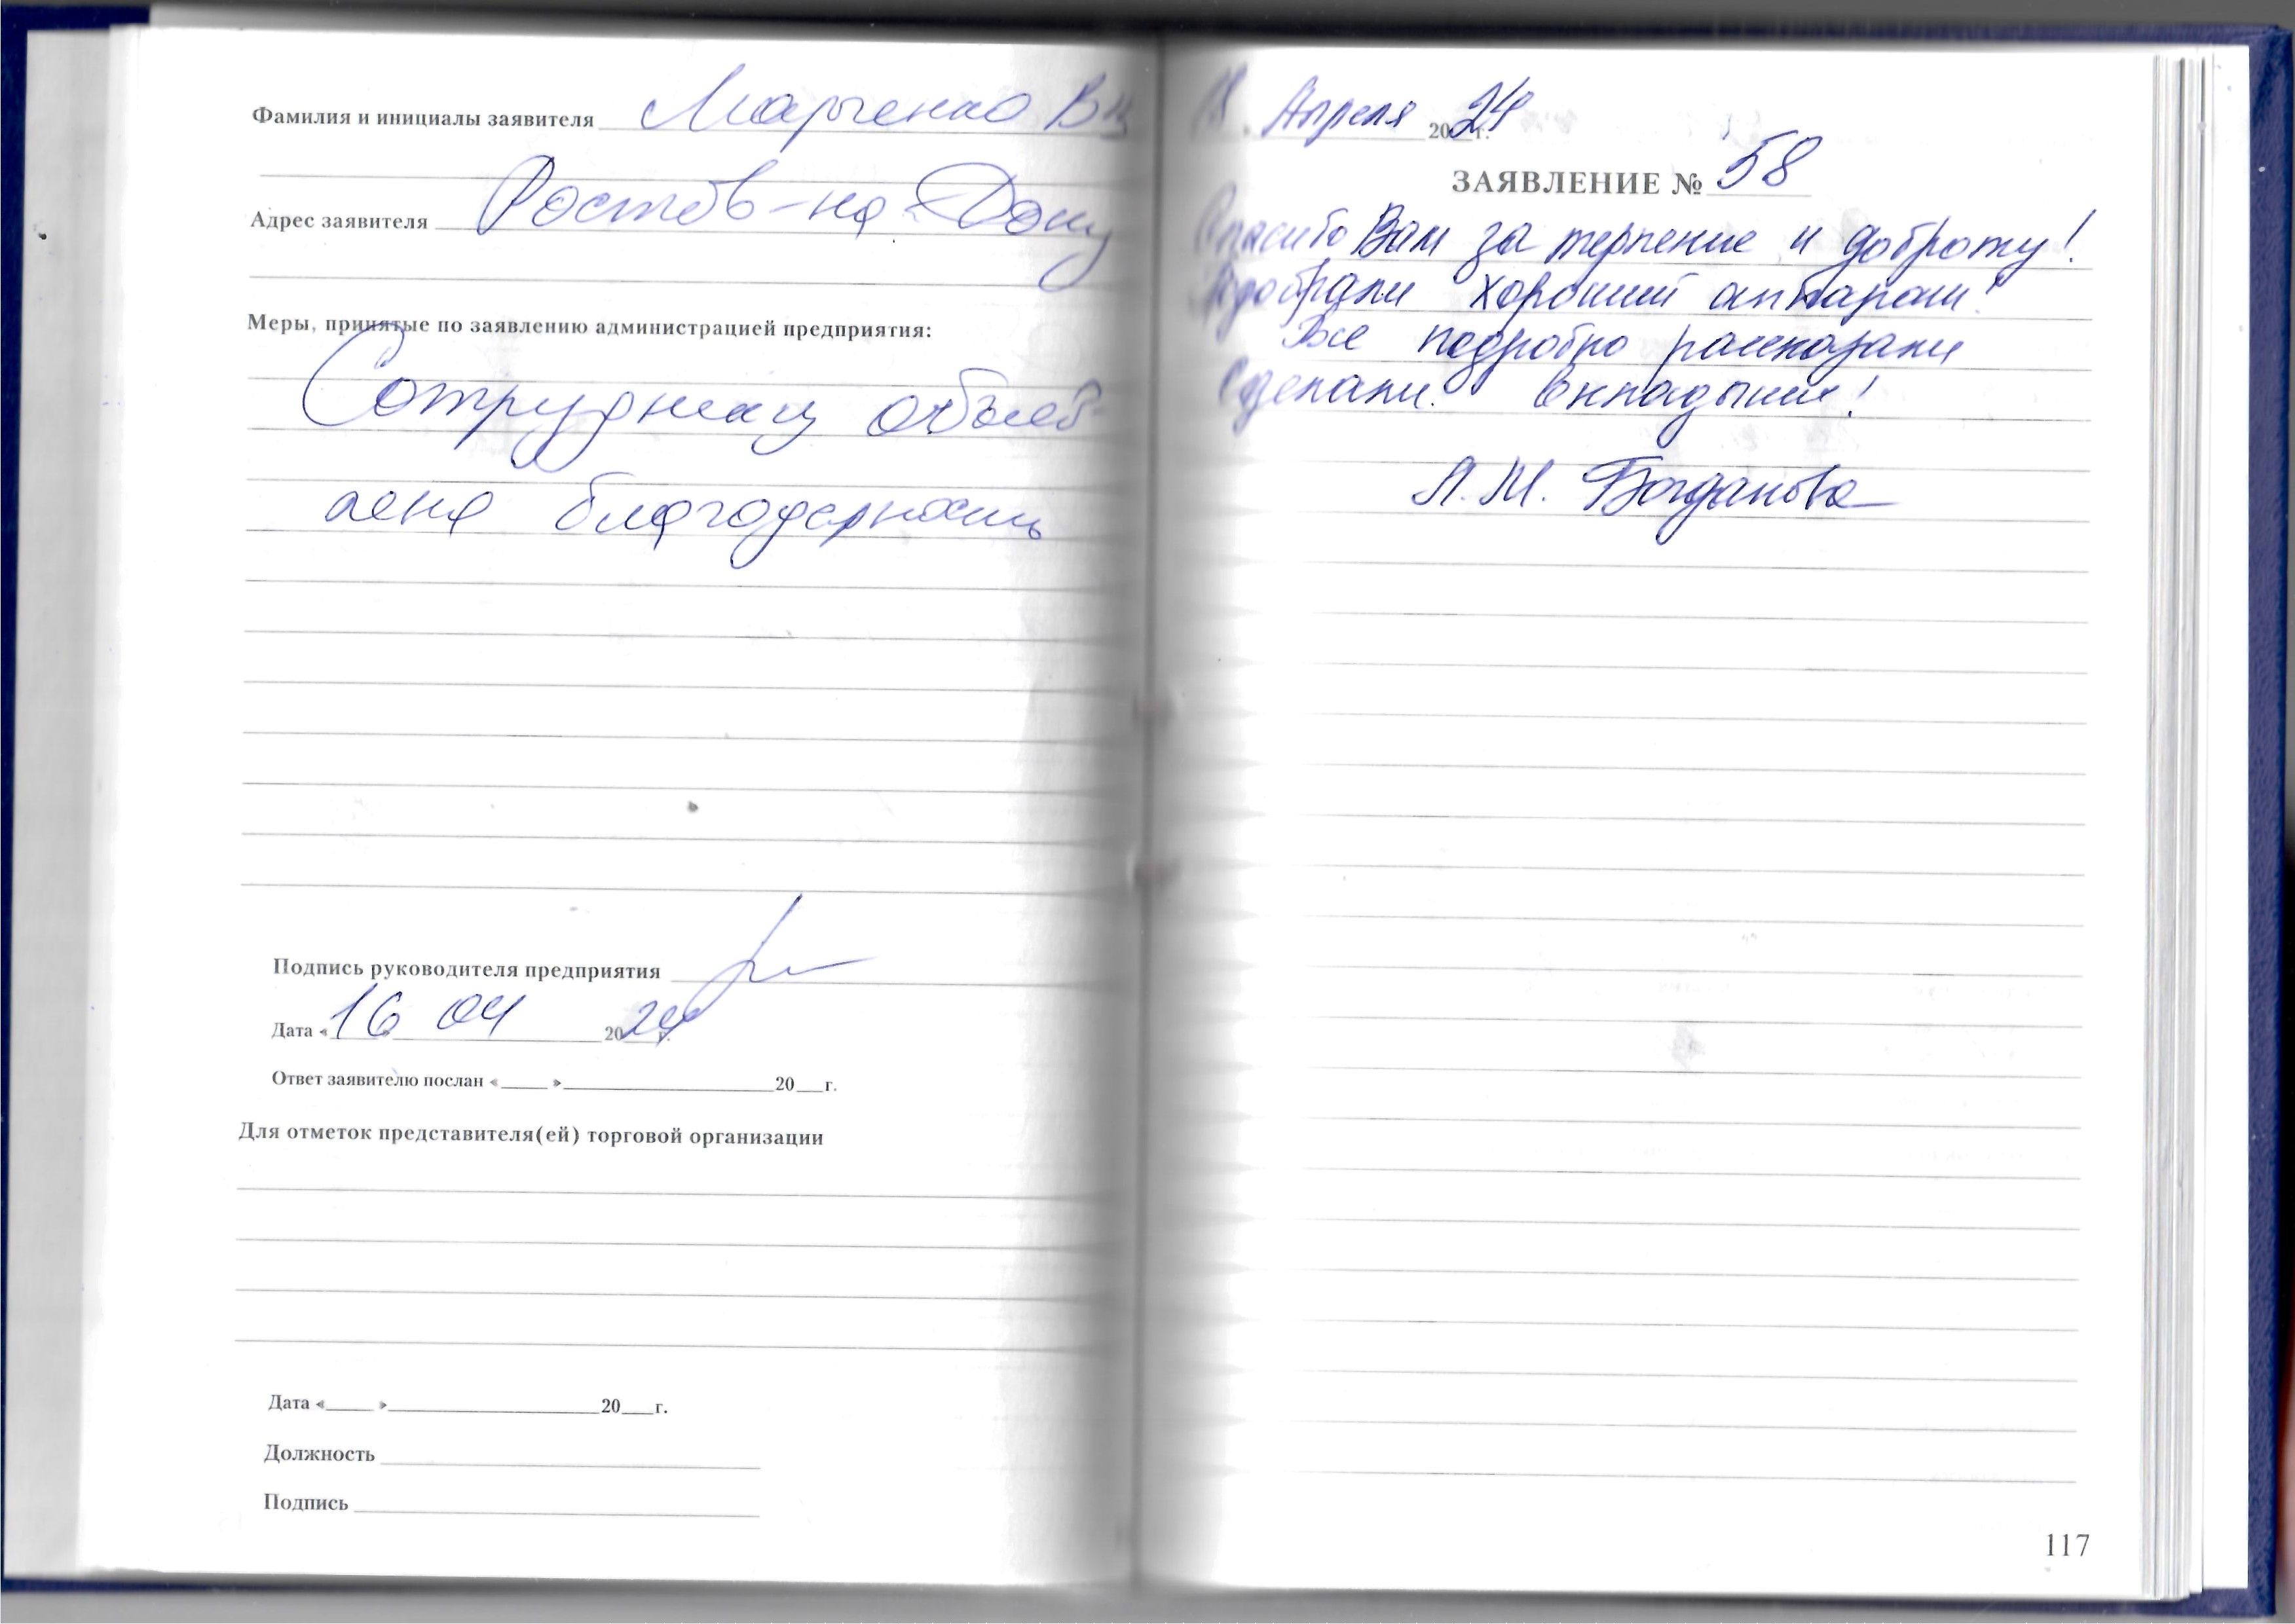 Фамилия и инициалы заявителя Марченко В
Адрес заявителя Ростов-на-Дону
Меры, принятые по заявлению администрацией предприятия:
Сотруднику объяв-
лена благодарность
Подпись руководителя предприятия
Дата « 16 04 2024 г.
Ответ заявителю послан «____ »____ 20__г.
Для отметок представителя(ей) торговой организации
Дата «____ »____ 20__г.
Должность
Подпись
18. Апреля 2024 г.
ЗАЯВЛЕНИЕ № 58
Спасибо Вам за терпение и доброту!
Подобрали хороший аппарат!
Все подробно рассказали
Сделали вкладыши!
Л.М. Богданова
117